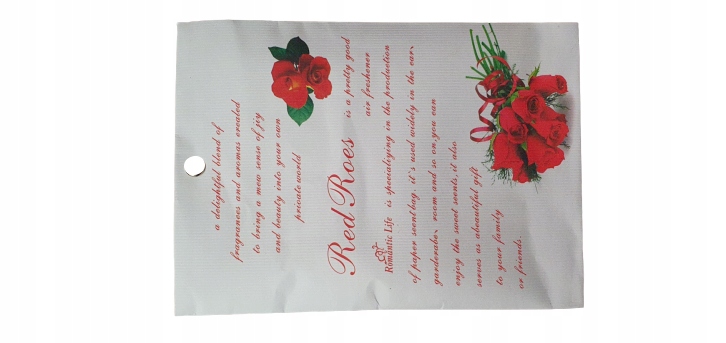 a delightful blend of
fragranees and aromas ereated
to bring a mew sense of joy
and beauty into your own
private world
Red Roes
is a pretty good
air freshener
Romantic Life is specialiying in the production
of paper scent bag. it's used widely in the ear、
garderobe、room and so on,you ean
enjoy the sweet seents,it also
serves as abeautiful gift
to your family
or friends.